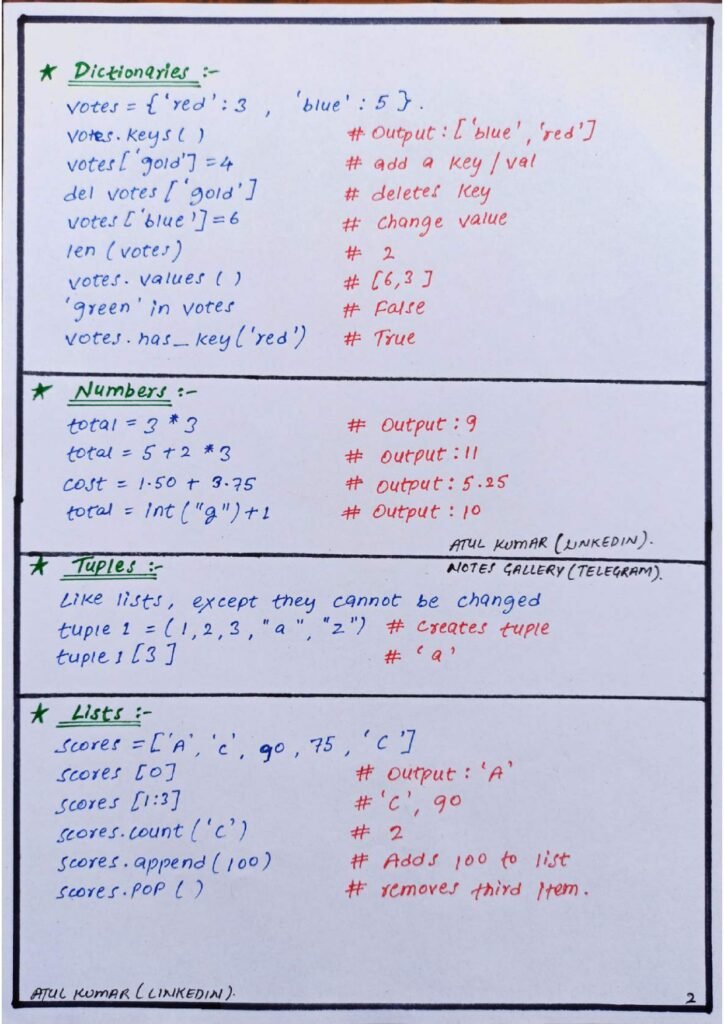 ★ Dictionaries :-
votes = {'red' : 3 , 'blue' : 5 }.
votes.keys ( ) # Output : ['blue', 'red']
votes ['gold'] = 4 # add a key / val
del votes ['gold'] # deletes key
votes ['blue'] = 6 # change value
len (votes) # 2
votes. values ( ) # [6,3 ]
'green' in votes # False
votes.has_key ('red') # True
★ Numbers :-
total = 3 * 3 # Output : 9
total = 5 + 2 * 3 # output : 11
cost = 1.50 + 3.75 # output : 5.25
total = int ("9") + 1 # Output : 10
ATUL KUMAR (LINKEDIN).
NOTES GALLERY (TELEGRAM).
★ Tuples :-
Like lists, except they cannot be changed
tuple 1 = (1, 2, 3, "a", "z") # Creates tuple
tuple 1 [3] # 'a'
★ Lists :-
scores = ['A', 'C', 90, 75, 'C']
scores [0] # Output : 'A'
scores [1:3] # 'C', 90
scores.count ('C') # 2
scores.append (100) # Adds 100 to list
scores.pop ( ) # removes third Item.
ATUL KUMAR (LINKEDIN).
2